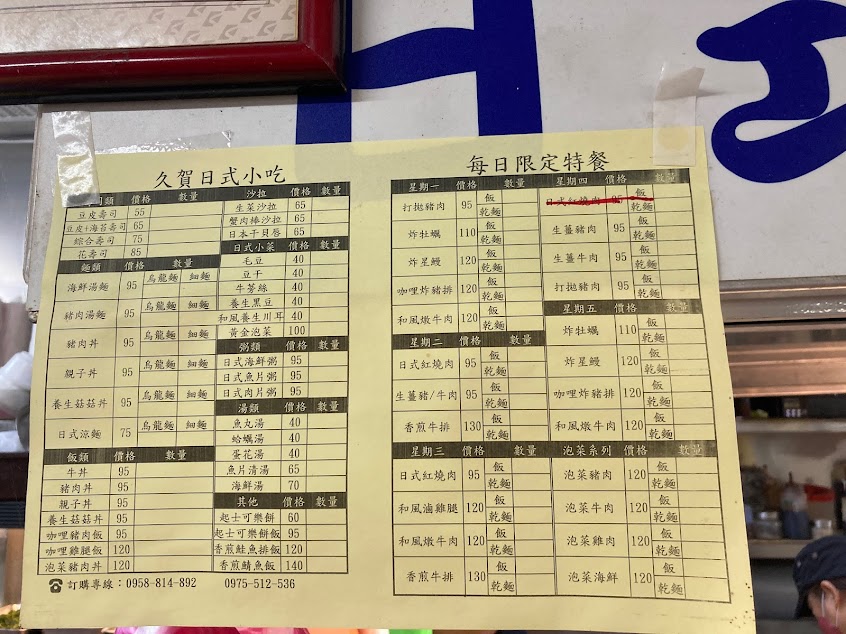 久賀日式小吃
司類 價格 數量
豆皮壽司 55
豆皮+海苔壽司 65
綜合壽司 75
花壽司 85
麵類 價格 數量
海鮮湯麵 95 烏龍麵 細麵
豬肉湯麵 95 烏龍麵 細麵
豬肉丼 95 烏龍麵 細麵
親子丼 95 烏龍麵 細麵
養生菇菇丼 95 烏龍麵 細麵
日式涼麵 75 烏龍麵 細麵
飯類 價格 數量
牛丼 95
豬肉丼 95
親子丼 95
養生菇菇丼 95
咖哩豬肉飯 95
咖哩雞腿飯 120
泡菜豬肉丼 120
沙拉 價格 數量
生菜沙拉 65
蟹肉棒沙拉 65
日本干貝唇 65
日式小菜 價格 數量
毛豆 40
豆干 40
牛蒡絲 40
養生黑豆 40
和風養生川耳 40
黃金泡菜 100
粥類 價格 數量
日式海鮮粥 95
日式魚片粥 95
日式肉片粥 95
湯類 價格 數量
魚丸湯 40
蛤蠣湯 40
蛋花湯 40
魚片清湯 65
海鮮湯 70
其他 價格 數量
起士可樂餅 60
起士可樂餅飯 95
香煎鮭魚排飯 120
香煎鯖魚飯 140
☎訂購專線:0958-814-892 0975-512-536
每日限定特餐
星期一 價格 數量
打拋豬肉 95 飯 乾麵
炸牡蠣 110 飯 乾麵
炸星鰻 120 飯 乾麵
咖哩炸豬排 120 飯 乾麵
和風燉牛肉 120 飯 乾麵
星期二 價格 數量
日式紅燒肉 95 飯 乾麵
生薑豬/牛肉 95 飯 乾麵
香煎牛排 130 飯 乾麵
星期三 價格 數量
日式紅燒肉 95 飯 乾麵
和風滷雞腿 120 飯 乾麵
和風燉牛肉 120 飯 乾麵
香煎牛排 130 飯 乾麵
星期四 價格 數量
日式紅燒肉 95 飯 乾麵
生薑豬肉 95 飯 乾麵
生薑牛肉 95 飯 乾麵
打拋豬肉 95 飯 乾麵
星期五 價格 數量
炸牡蠣 110 飯 乾麵
炸星鰻 120 飯 乾麵
咖哩炸豬排 120 飯 乾麵
和風燉牛肉 120 飯 乾麵
泡菜系列 價格 數量
泡菜豬肉 120 飯 乾麵
泡菜牛肉 120 飯 乾麵
泡菜雞肉 120 飯 乾麵
泡菜海鮮 120 飯 乾麵